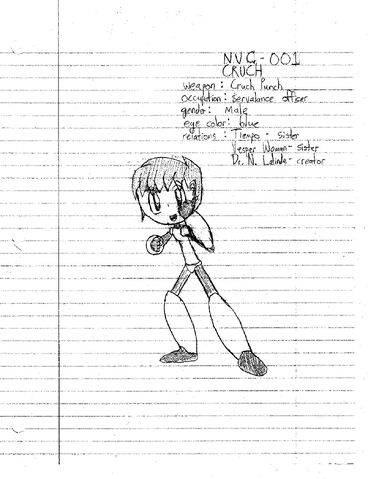 NVG-001
CRUCH
weapon: Cruch Punch
occupation: Servalance officer
gender: Male
eye color: blue
relations: Tiempo - sister
Vesper Woman - sister
Dr. N. Lalinde - creator